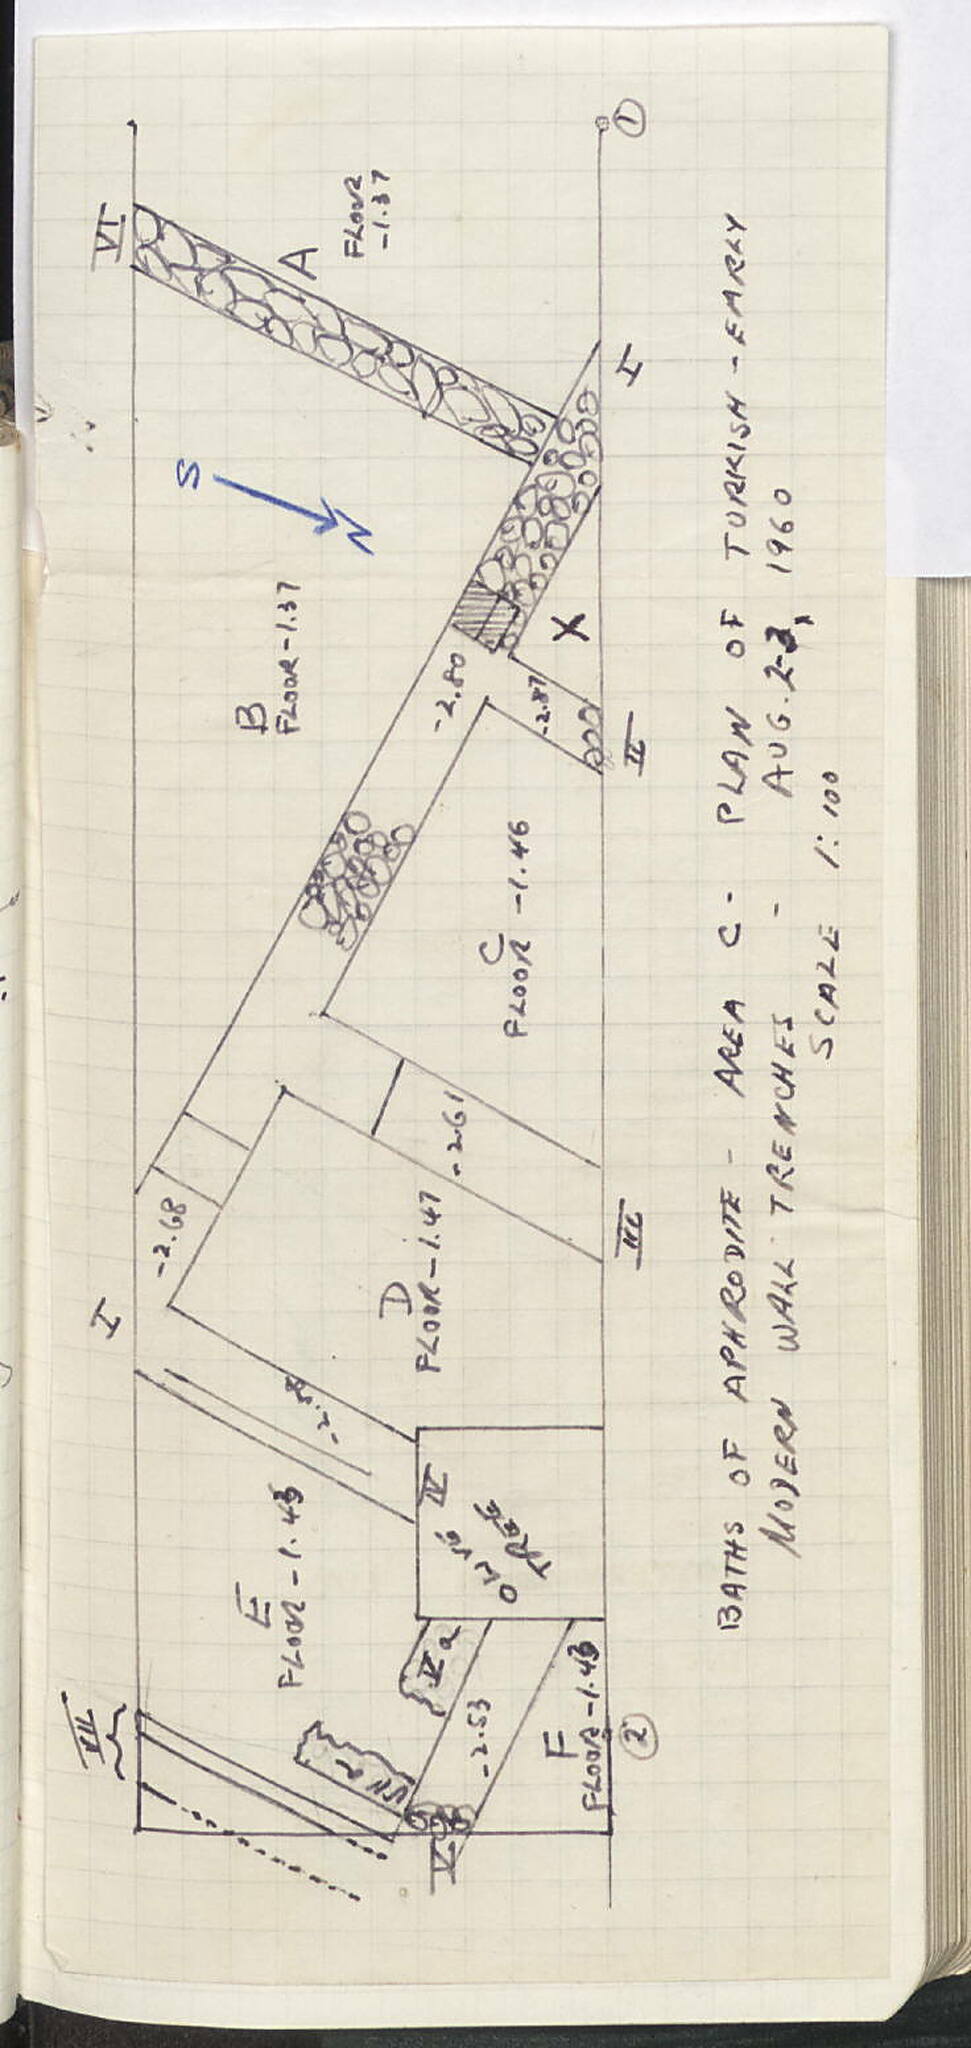 VI
A
FLOOR
-1.37
1
I
S
N
B
FLOOR -1.37
X
-2.80
-2.87
II
C
FLOOR -1.46
-2.61
III
-2.68
I
D
FLOOR -1.47
E
FLOOR -1.43
IV
TREE
Va
VII
-2.53
F
FLOOR -1.43
2
V
BATHS OF APHRODITE - AREA C - PLAN OF TURKISH - EARLY
MODERN WALL TRENCHES - AUG. 2-3, 1960
SCALE 1:100